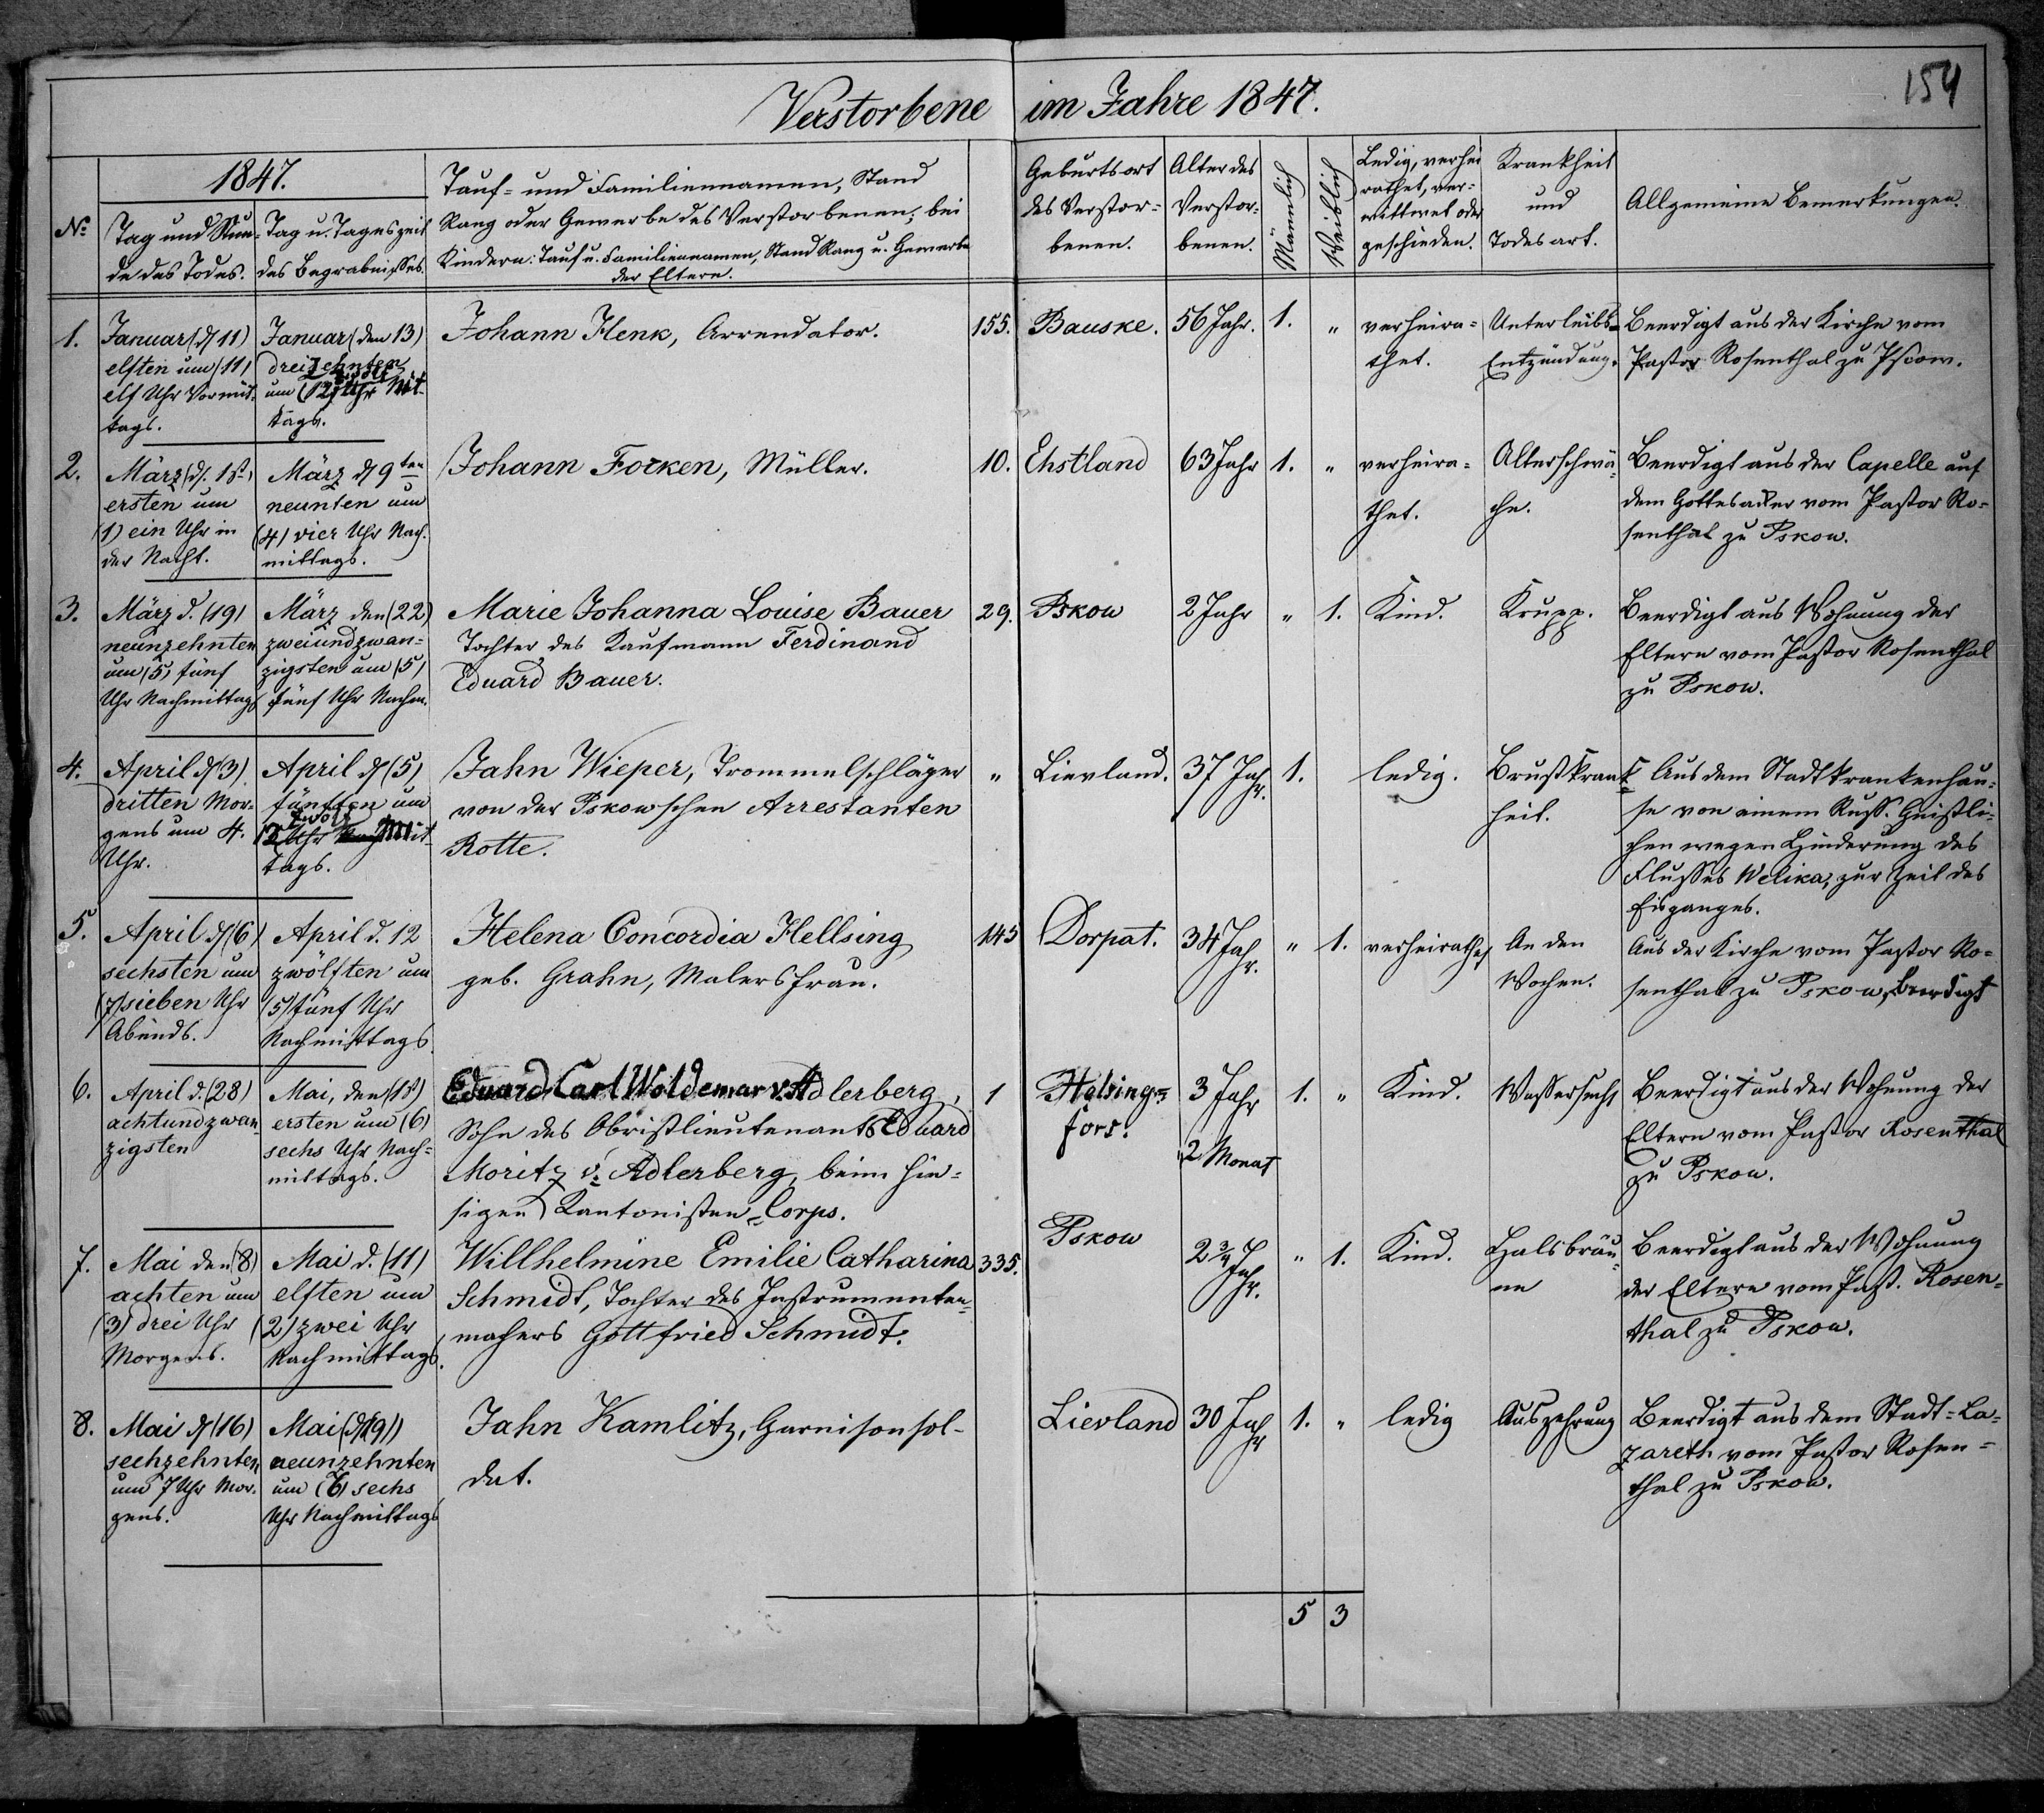 154
Verstorbene im Jahre 1847.
№
1847.
Tag und Stun-
de des Todes.
Tag u. Tageszeit
des Begrabnisses.
Tauf- und Familiennamen, Stand
Rang oder Gewerbe des Verstorbenen; bei
Kindern: Tauf u. Familiennamen, Stand Rang u. Gewerbe
der Eltern.
Geburtsort
des Verstor-
benen.
Alter des
Verstor-
benen.
Männlich
Weiblich
Ledig, verhei
rathet, ver-
wittwet oder
geschieden.
Krankheit
und
Todesart.
Allgemeine Bemerkungen.
1.
Januar (d 11)
elften um (11)
elf Uhr Vormit-
tags.
Januar (den 13)
dreizehnten
zwölf
um (12) Uhr Mit-
tags.
Johann Henk, Arrendator.
155.
Bauske.
56 Jahr.
1.
"
verheira-
thet.
Unterleibs-
Entzündung.
Beerdigt aus der Kirche vom
Pastor Rosenthal zu Pscow.
2.
März (d. 1st)
ersten um
(1) ein Uhr in
der Nacht.
März d 9ten
neunten um
(4) vier Uhr Nach-
mittags.
Johann Focken, Müller.
10.
Ehstland
63 Jahr
1.
"
verheira-
thet.
Alterschwä-
che.
Beerdigt aus der Capelle auf
dem Gottesacker vom Pastor Ro-
senthal zu Pskow.
3.
März d. (19)
neunzehnten
um (5) fünf
Uhr Nachmittags
März den (22)
zweiundzwan-
zigsten um (5)
fünf Uhr Nachm.
Marie Johanna Louise Bauer
Tochter des Kaufmann Ferdinand
Eduard Bauer.
29.
Pskow
2 Jahr
"
1.
Kind.
Krupp.
Beerdigt aus Wohnung der
Eltern vom Pastor Rosenthal
zu Pskow.
4.
April d (3)
dritten Mor-
gens um 4.
Uhr.
April d (5)
fünften um
zwölf
12 Uhr Mit-
tags.
Jahn Wieper, Trommelschläger
von der Pskowschen Arrestanten
Rotte.
"
Lievland.
37 Jahr.
1.
ledig.
Brustkrank-
heit.
Aus dem Stadtkrankenhau-
se von einem Russ. Geistli-
chen wegen Hinderung des
Flusses Welika, zur Zeit des
Eisganges.
5.
April d (6)
sechsten um
(7) sieben Uhr
Abends.
April d. 12
zwölften um
(5) fünf Uhr
Nachmittags.
Helena Concordia Hellsing
geb. Grahn, Malersfrau.
145
Dorpat.
34 Jahr.
"
1.
verheirathet
An den
Wochen.
Aus der Kirche vom Pastor Ro-
senthal zu Pskow, beerdigt
6.
April d. (28)
achtundzwan-
zigsten
Mai, den (1st)
ersten um (6)
sechs Uhr Nach-
mittags.
Eduard Carl Woldemar v. Adlerberg,
Sohn des Obristlieutenants Eduard
Moritz v. Adlerberg, beim hie-
sigen Kantonisten-Corps.
1
Helsing-
fors.
3 Jahr
2 Monat
1.
"
Kind.
Wassersucht
Beerdigt aus der Wohnung der
Eltern vom Pastor Rosenthal
zu Pskow.
7.
Mai den (8)
achten um
(3) drei Uhr
Morgens.
Mai d. (11)
elften um
(2) zwei Uhr
Nachmittags.
Willhelmine Emilie Catharina
Schmidt, Tochter des Instrumenten-
machers Gottfried Schmidt.
335.
Pskow
2 3/4 Jahr.
"
1.
Kind.
Halsbräu-
ne
Beerdigt aus der Wohnung
der Eltern vom Past. Rosen-
thal zu Pskow.
8.
Mai d (16)
sechzehnten
um 7 Uhr Mor-
gens.
Mai (d 19)
neunzehnten
um (6) sechs
Uhr Nachmittags
Jahn Kamlitz, Garnisonsol-
dat.
Lievland
30 Jahr
1.
"
ledig
Auszehrung
Beerdigt aus dem Stadt-La-
zareth vom Pastor Rosen-
thal zu Pskow.
5 3